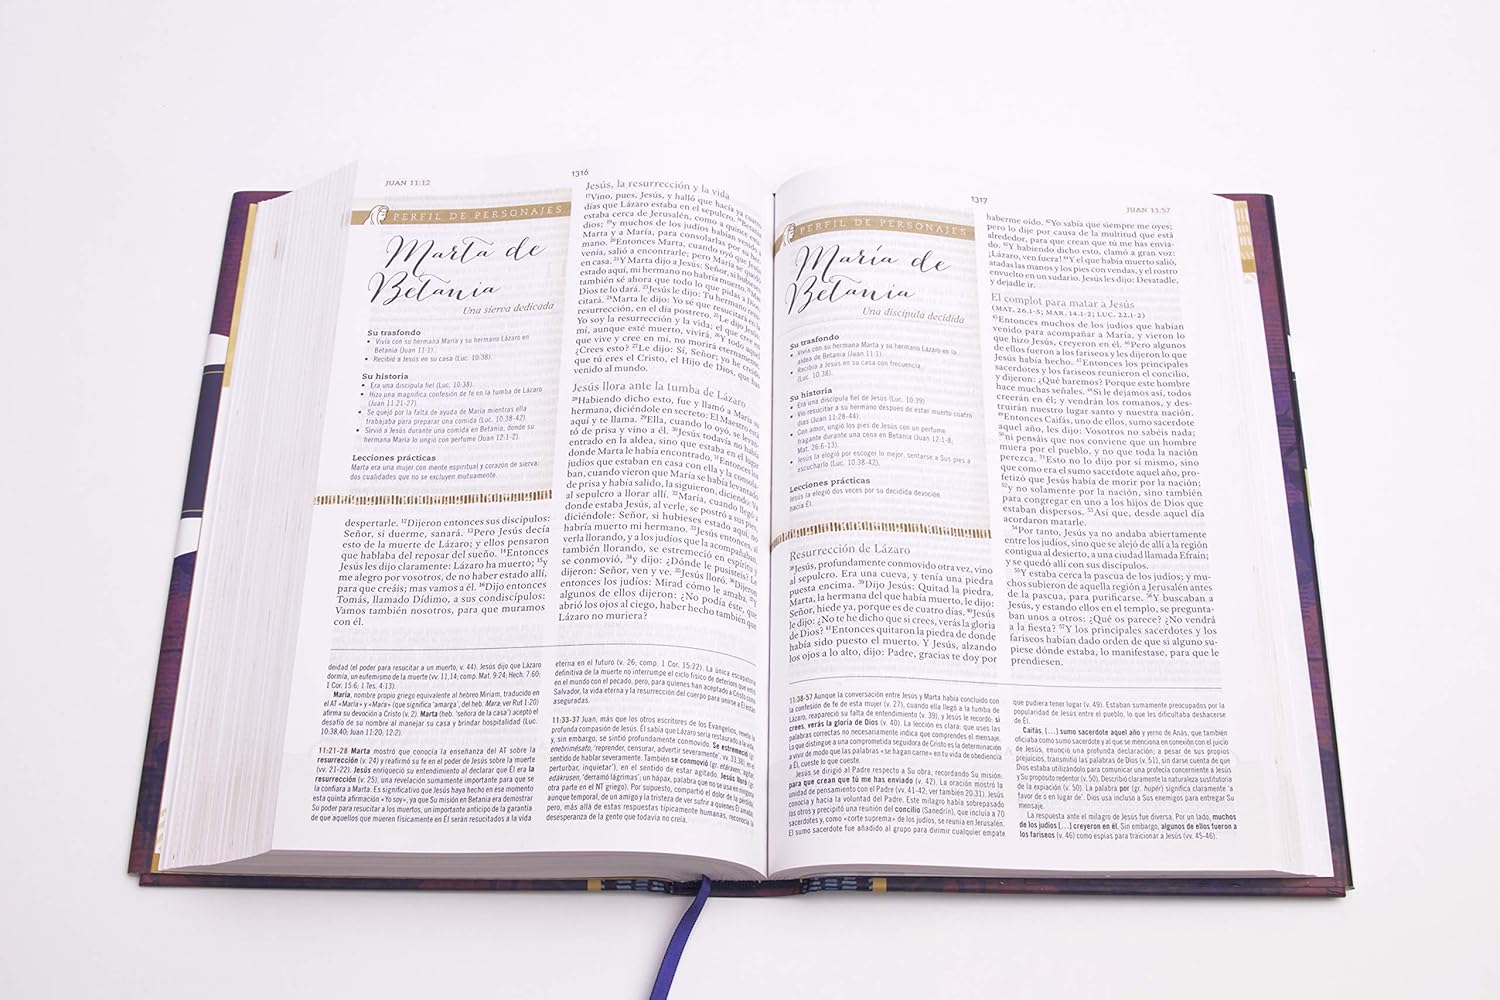 JUAN 11:12
1316
PERFIL DE PERSONAJES
Marta de
Betania
Una sierva dedicada
Su trasfondo
• Vivía con su hermana María y su hermano Lázaro en
Betania (Juan 11-1).
• Recibió a Jesús en su casa (Luc. 10:38).
Su historia
• Era una discípula fiel (Luc. 10:38).
• Hizo una magnífica confesión de fe en la tumba de Lázaro
(Juan 11:21-27).
• Se quejó por la falta de ayuda de María mientras ella
trabajaba para preparar una comida (Luc. 10:38-42).
• Sirvió a Jesús durante una comida en Betania, donde su
hermana María lo ungió con perfume (Juan 12:1-2).
Lecciones prácticas
Marta era una mujer con mente espiritual y corazón de sierva:
dos cualidades que no se excluyen mutuamente.
despertarle. 12Dijeron entonces sus discípulos:
Señor, si duerme, sanará. 13Pero Jesús decía
esto de la muerte de Lázaro; y ellos pensaron
que hablaba del reposar del sueño. 14Entonces
Jesús les dijo claramente: Lázaro ha muerto; 15y
me alegro por vosotros, de no haber estado allí,
para que creáis; mas vamos a él. 16Dijo entonces
Tomás, llamado Dídimo, a sus condiscípulos:
Vamos también nosotros, para que muramos
con él.
Jesús, la resurrección y la vida
17Vino, pues, Jesús, y halló que hacía ya cuatro
días que Lázaro estaba en el sepulcro. 18Betania
estaba cerca de Jerusalén, como a quince esta-
dios; 19y muchos de los judíos habían venido a
Marta y a María, para consolarlas por su her-
mano. 20Entonces Marta, cuando oyó que Jesús
venía, salió a encontrarle; pero María se quedó
en casa. 21Y Marta dijo a Jesús: Señor, si hubieses
estado aquí, mi hermano no habría muerto. 22Mas
también sé ahora que todo lo que pidas a Dios,
Dios te lo dará. 23Jesús le dijo: Tu hermano resu-
citará. 24Marta le dijo: Yo sé que resucitará en la
resurrección, en el día postrero. 25Le dijo Jesús:
Yo soy la resurrección y la vida; el que cree en
mí, aunque esté muerto, vivirá. 26Y todo aquel
que vive y cree en mí, no morirá eternamente.
¿Crees esto? 27Le dijo: Sí, Señor; yo he creído
que tú eres el Cristo, el Hijo de Dios, que has
venido al mundo.
Jesús llora ante la tumba de Lázaro
28Habiendo dicho esto, fue y llamó a María su
hermana, diciéndole en secreto: El Maestro está
aquí y te llama. 29Ella, cuando lo oyó, se levan-
tó de prisa y vino a él. 30Jesús todavía no había
entrado en la aldea, sino que estaba en el lugar
donde Marta le había encontrado. 31Entonces los
judíos que estaban en casa con ella y la consola-
ban, cuando vieron que María se había levantado
de prisa y había salido, la siguieron, diciendo: Va
al sepulcro a llorar allí. 32María, cuando llegó a
donde estaba Jesús, al verle, se postró a sus pies,
diciéndole: Señor, si hubieses estado aquí, no
habría muerto mi hermano. 33Jesús entonces, al
verla llorando, y a los judíos que la acompañaban,
también llorando, se estremeció en espíritu y
se conmovió, 34y dijo: ¿Dónde le pusisteis? Le
dijeron: Señor, ven y ve. 35Jesús lloró. 36Dijeron
entonces los judíos: Mirad cómo le amaba. 37Y
algunos de ellos dijeron: ¿No podía éste, que
abrió los ojos al ciego, haber hecho también que
Lázaro no muriera?
deidad (el poder para resucitar a un muerto, v. 44). Jesús dijo que Lázaro
dormía, un eufemismo de la muerte (vv. 11,14; comp. Mat. 9:24; Hech. 7:60;
1 Cor. 15:6; 1 Tes. 4:13).
María, nombre propio griego equivalente al hebreo Miriam, traducido en
el AT «María» y «Mara» (que significa 'amarga', del heb. Mara; ver Rut 1:20)
afirma su devoción a Cristo (v. 2). Marta (heb. 'señora de la casa') aceptó el
desafío de su nombre al manejar su casa y brindar hospitalidad (Luc.
10:38,40; Juan 11:20; 12:2).
11:21-28 Marta mostró que conocía la enseñanza del AT sobre la
resurrección (v. 24) y reafirmó su fe en el poder de Jesús sobre la muerte
(vv. 21-22). Jesús enriqueció su entendimiento al declarar que Él era la
resurrección (v. 25), una revelación sumamente importante para que se
la confiara a Marta. Es significativo que Jesús haya hecho en ese momento
esta quinta afirmación «Yo soy», ya que Su misión en Betania era demostrar
Su poder para resucitar a los muertos, un importante anticipo de la garantía
de que aquellos que mueren físicamente en Él serán resucitados a la vida
eterna en el futuro (v. 26; comp. 1 Cor. 15:22). La única escapatoria
definitiva de la muerte no interrumpe el ciclo físico de deterioro que entró
en el mundo con el pecado, pero, para quienes han aceptado a Cristo como
Salvador, la vida eterna y la resurrección del cuerpo para unirse a Él están
aseguradas.
11:33-37 Juan, más que los otros escritores de los Evangelios, reveló la
profunda compasión de Jesús. Él sabía que Lázaro sería restaurado a la vida
y, sin embargo, se sintió profundamente conmovido. Se estremeció (gr.
enebrimēsato, 'reprender, censurar, advertir severamente', vv. 33,38), en el
sentido de hablar severamente. También se conmovió (gr. etáraxen, 'agitar,
perturbar, inquietar'), en el sentido de estar agitado. Jesús lloró (gr.
edákrusen, 'derramó lágrimas'; un hápax, palabra que no se usa en ninguna
otra parte en el NT griego). Por supuesto, compartió el dolor de la pérdida,
aunque temporal, de un amigo y la tristeza de ver sufrir a quienes Él amaba,
pero, más allá de estas respuestas típicamente humanas, reconocía la
desesperanza de la gente que todavía no creía.
1317
JUAN 11:57
PERFIL DE PERSONAJES
María de
Betania
Una discípula decidida
Su trasfondo
• Vivía con su hermana Marta y su hermano Lázaro en la
aldea de Betania (Juan 11:1).
• Recibía a Jesús en su casa con frecuencia.
(Luc. 10:38).
Su historia
• Era una discípula fiel de Jesús (Luc. 10:39)
• Vio resucitar a su hermano después de estar muerto cuatro
días (Juan 11:28-44).
• Con amor, ungió los pies de Jesús con un perfume
fragante durante una cena en Betania (Juan 12:1-8;
Mat. 26:6-13).
• Jesús la elogió por escoger lo mejor, sentarse a Sus pies a
escucharlo (Luc. 10:38-42).
Lecciones prácticas
Jesús la elogió dos veces por su decidida devoción
hacia Él.
Resurrección de Lázaro
38Jesús, profundamente conmovido otra vez, vino
al sepulcro. Era una cueva, y tenía una piedra
puesta encima. 39Dijo Jesús: Quitad la piedra.
Marta, la hermana del que había muerto, le dijo:
Señor, hiede ya, porque es de cuatro días. 40Jesús
le dijo: ¿No te he dicho que si crees, verás la gloria
de Dios? 41Entonces quitaron la piedra de donde
había sido puesto el muerto. Y Jesús, alzando
los ojos a lo alto, dijo: Padre, gracias te doy por
haberme oído. 42Yo sabía que siempre me oyes;
pero lo dije por causa de la multitud que está
alrededor, para que crean que tú me has envia-
do. 43Y habiendo dicho esto, clamó a gran voz:
¡Lázaro, ven fuera! 44Y el que había muerto salió,
atadas las manos y los pies con vendas, y el rostro
envuelto en un sudario. Jesús les dijo: Desatadle,
y dejadle ir.
El complot para matar a Jesús
(MAT. 26.1-5; MAR. 14.1-2; LUC. 22.1-2)
45Entonces muchos de los judíos que habían
venido para acompañar a María, y vieron lo
que hizo Jesús, creyeron en él. 46Pero algunos
de ellos fueron a los fariseos y les dijeron lo que
Jesús había hecho. 47Entonces los principales
sacerdotes y los fariseos reunieron el concilio,
y dijeron: ¿Qué haremos? Porque este hombre
hace muchas señales. 48Si le dejamos así, todos
creerán en él; y vendrán los romanos, y des-
truirán nuestro lugar santo y nuestra nación.
49Entonces Caifás, uno de ellos, sumo sacerdote
aquel año, les dijo: Vosotros no sabéis nada;
50ni pensáis que nos conviene que un hombre
muera por el pueblo, y no que toda la nación
perezca. 51Esto no lo dijo por sí mismo, sino
que como era el sumo sacerdote aquel año, pro-
fetizó que Jesús había de morir por la nación;
52y no solamente por la nación, sino también
para congregar en uno a los hijos de Dios que
estaban dispersos. 53Así que, desde aquel día
acordaron matarle.
54Por tanto, Jesús ya no andaba abiertamente
entre los judíos, sino que se alejó de allí a la región
contigua al desierto, a una ciudad llamada Efraín;
y se quedó allí con sus discípulos.
55Y estaba cerca la pascua de los judíos; y mu-
chos subieron de aquella región a Jerusalén antes
de la pascua, para purificarse. 56Y buscaban a
Jesús, y estando ellos en el templo, se pregunta-
ban unos a otros: ¿Qué os parece? ¿No vendrá
a la fiesta? 57Y los principales sacerdotes y los
fariseos habían dado orden de que si alguno su-
piese dónde estaba, lo manifestase, para que le
prendiesen.
11:38-57 Aunque la conversación entre Jesús y Marta había concluido con
la confesión de fe de esta mujer (v. 27), cuando ella llegó a la tumba de
Lázaro, reapareció su falta de entendimiento (v. 39), y Jesús le recordó: si
crees, verás la gloria de Dios (v. 40). La lección es clara: que uses las
palabras correctas no necesariamente indica que comprendes el mensaje.
Lo que distingue a una comprometida seguidora de Cristo es la determinación
a vivir de modo que las palabras «se hagan carne» en tu vida de obediencia
a Él, cueste lo que cueste.
Jesús se dirigió al Padre respecto a Su obra, recordando Su misión:
para que crean que tú me has enviado (v. 42). La oración mostró la
unidad de pensamiento con el Padre (vv. 41-42; ver también 20:31). Jesús
conocía y hacía la voluntad del Padre. Este milagro había sobrepasado
los otros y precipitó una reunión del concilio (Sanedrín), que incluía a 70
sacerdotes y, como «corte suprema» de los judíos, se reunía en Jerusalén.
El sumo sacerdote fue añadido al grupo para dirimir cualquier empate
que pudiera tener lugar (v. 49). Estaban sumamente preocupados por la
popularidad de Jesús entre el pueblo, lo que les dificultaba deshacerse
de Él.
Caifás, [...] sumo sacerdote aquel año y yerno de Anás, que también
oficiaba como sumo sacerdote y al que se menciona en conexión con el juicio
de Jesús, enunció una profunda declaración; a pesar de sus propios
prejuicios, transmitió las palabras de Dios (v. 51), sin darse cuenta de que
Dios estaba utilizándolo para comunicar una profecía concerniente a Jesús
y Su propósito redentor (v. 50). Describió claramente la naturaleza sustitutoria
de la expiación (v. 50). La palabra por (gr. hupér) significa claramente 'a
favor de o en lugar de'. Dios usa incluso a Sus enemigos para entregar Su
mensaje.
La respuesta ante el milagro de Jesús fue diversa. Por un lado, muchos
de los judíos [...] creyeron en Él. Sin embargo, algunos de ellos fueron a
los fariseos (v. 46) como espías para traicionar a Jesús (vv. 45-46).